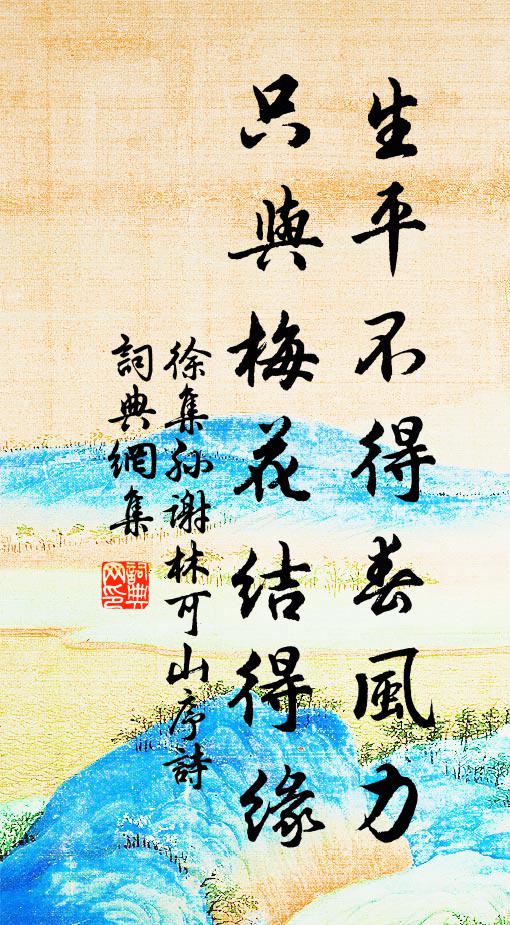 生平不得春風力
只與梅花結得緣
徐集孙谢林可山序詩
詞典網集
詞典网印